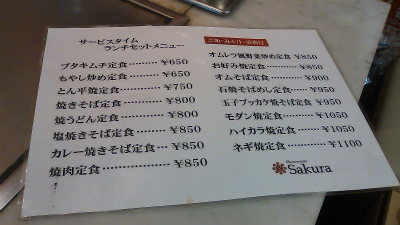 サービスタイム
ランチセットメニュー
ブタキムチ定食………¥650
もやし炒め定食………¥650
とん平焼定食…………¥750
焼きそば定食…………¥800
焼うどん定食…………¥800
塩焼きそば定食………¥850
カレー焼きそば定食…¥850
焼肉定食………………¥850
オムレツ風野菜炒め定食¥850
お好み焼定食…………¥850
オムそば定食…………¥900
石焼そばめし定食……¥950
玉子ブッカケ焼定食…¥950
モダン焼定食…………¥1050
ハイカラ焼定食………¥1050
ネギ焼定食……………¥1100
Sakura